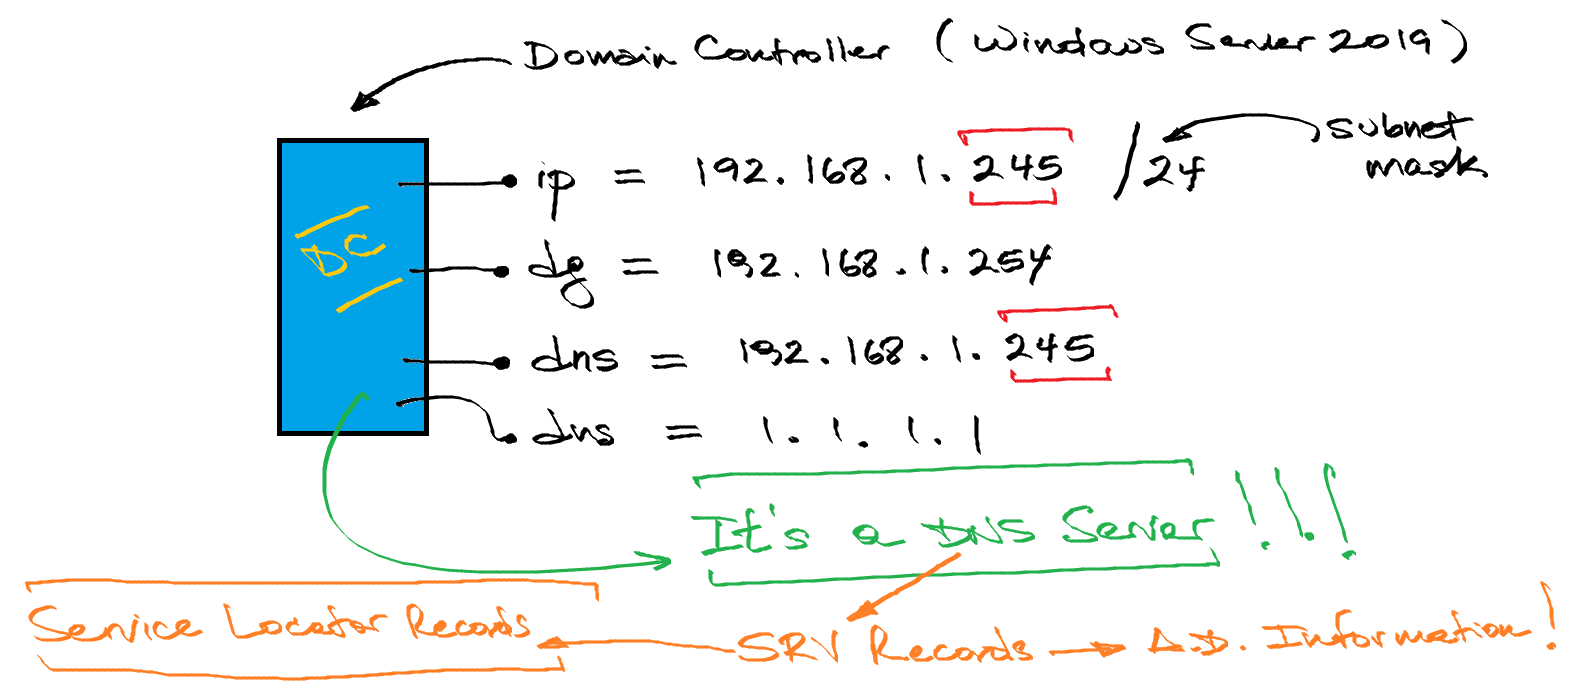 Domain Controller (Windows Server 2019)
subnet
mask
ip = 192.168.1.245 /24
DC
dg = 192.168.1.254
dns = 192.168.1.245
dns = 1.1.1.1
It's a DNS Server!!!
Service Locator Records
SRV Records
A.D. Information!